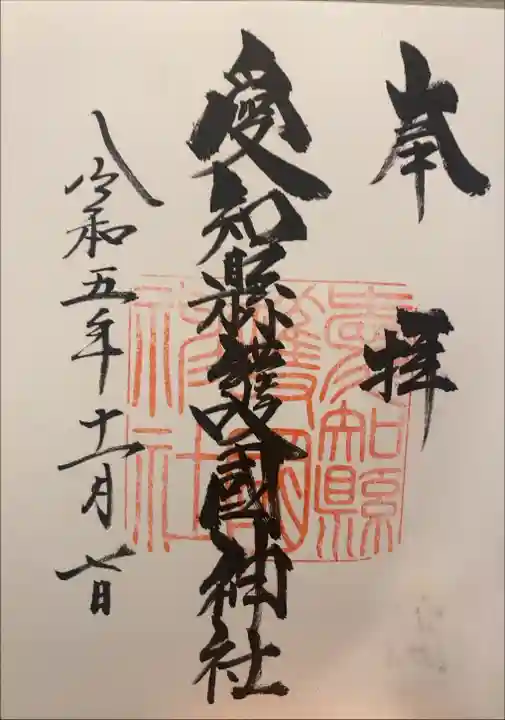 奉拝
愛知縣護國神社
愛知縣護國神社
令和五年十一月七日